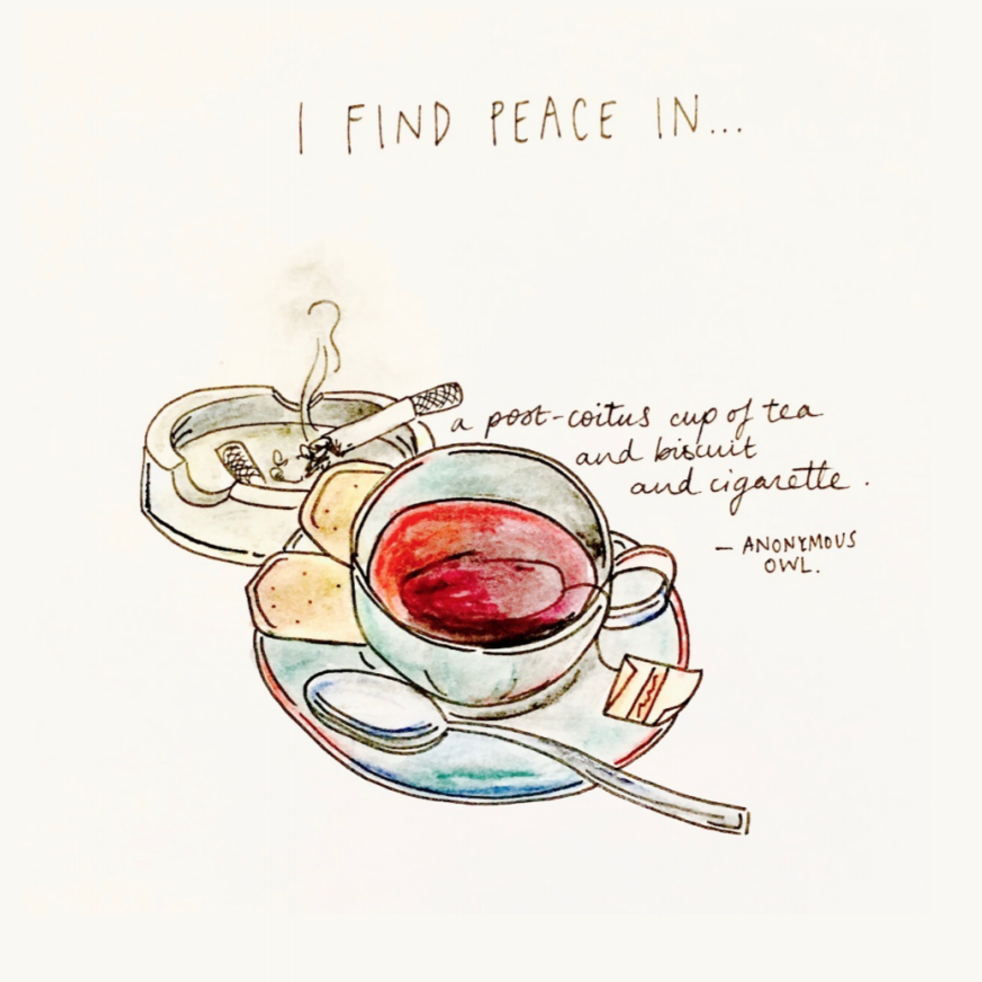 I FIND PEACE IN...
a post-coitus cup of tea
and biscuit
and cigarette.
— ANONYMOUS
OWL.